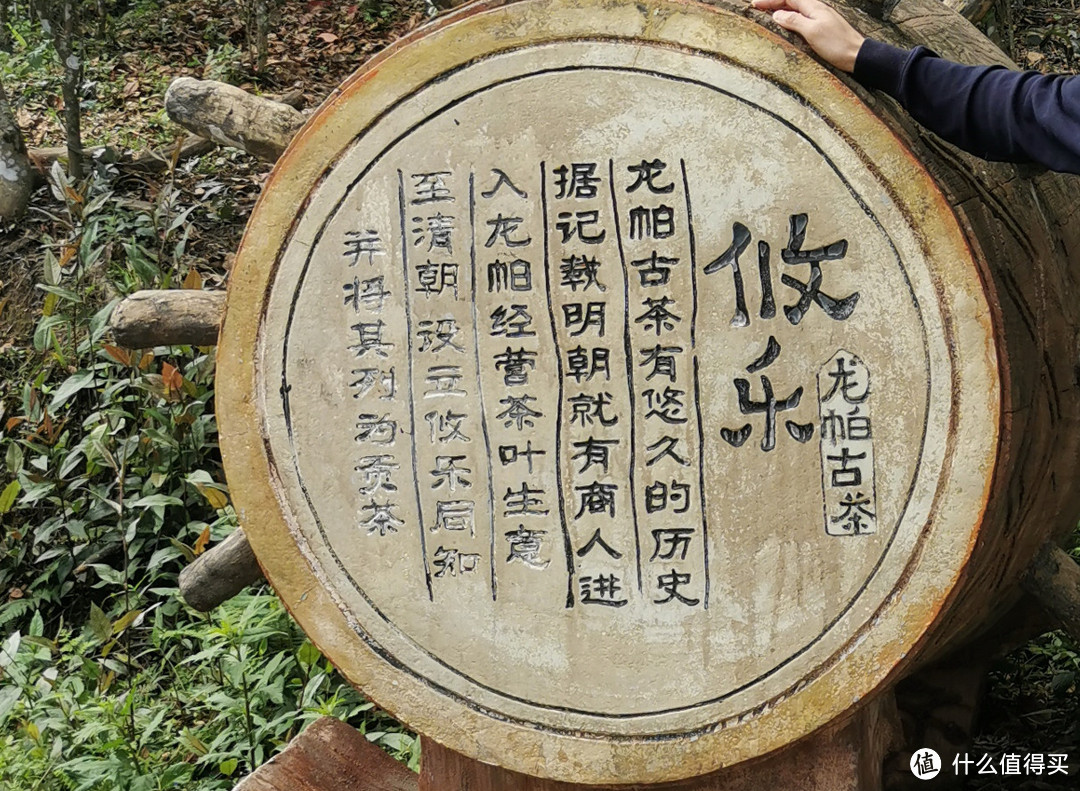 攸乐
龙帕古茶
龙帕古茶有悠久的历史
据记载明朝就有商人进
入龙帕经营茶叶生意
至清朝设立攸乐局知
并将其列为贡茶
值 什么值得买